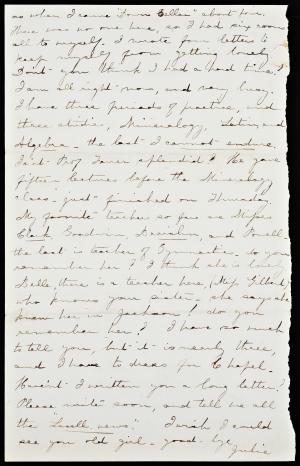 as when I came "Down Cellar" about four.
There was no one here, so I had my room
all to myself. I wrote four letters to
keep myself from getting lonely
Don't you think I had a hard time?
I am all right now, and very busy.
I have three periods of practice, and
three studies, Mineralogy, Latin, and
Algebra - the last I cannot endure.
Isn't Prof splendid? He gave
fifteen lectures before the Mineralogy
class - just finished on Thursday.
My favorite teacher so far are Misses
Clark, Goodwin, and
the last is teacher of Gymnastics. do you
remember her? I think she is lovely
Belle, there is a teacher here, (Miss Gilbert)
who knows your sister - she says she
knew her in Jackson! do you
remember her? I have so much
to tell you, but it is nearly three,
and I have to dress for Chapel.
Haven't I written you a long letter?
Please write soon, and tell me all
the news." I wish I could
see you old girl - good-bye
Julie